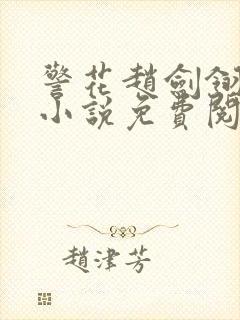 警花趙劍釵
小說免費閱
趙津芳